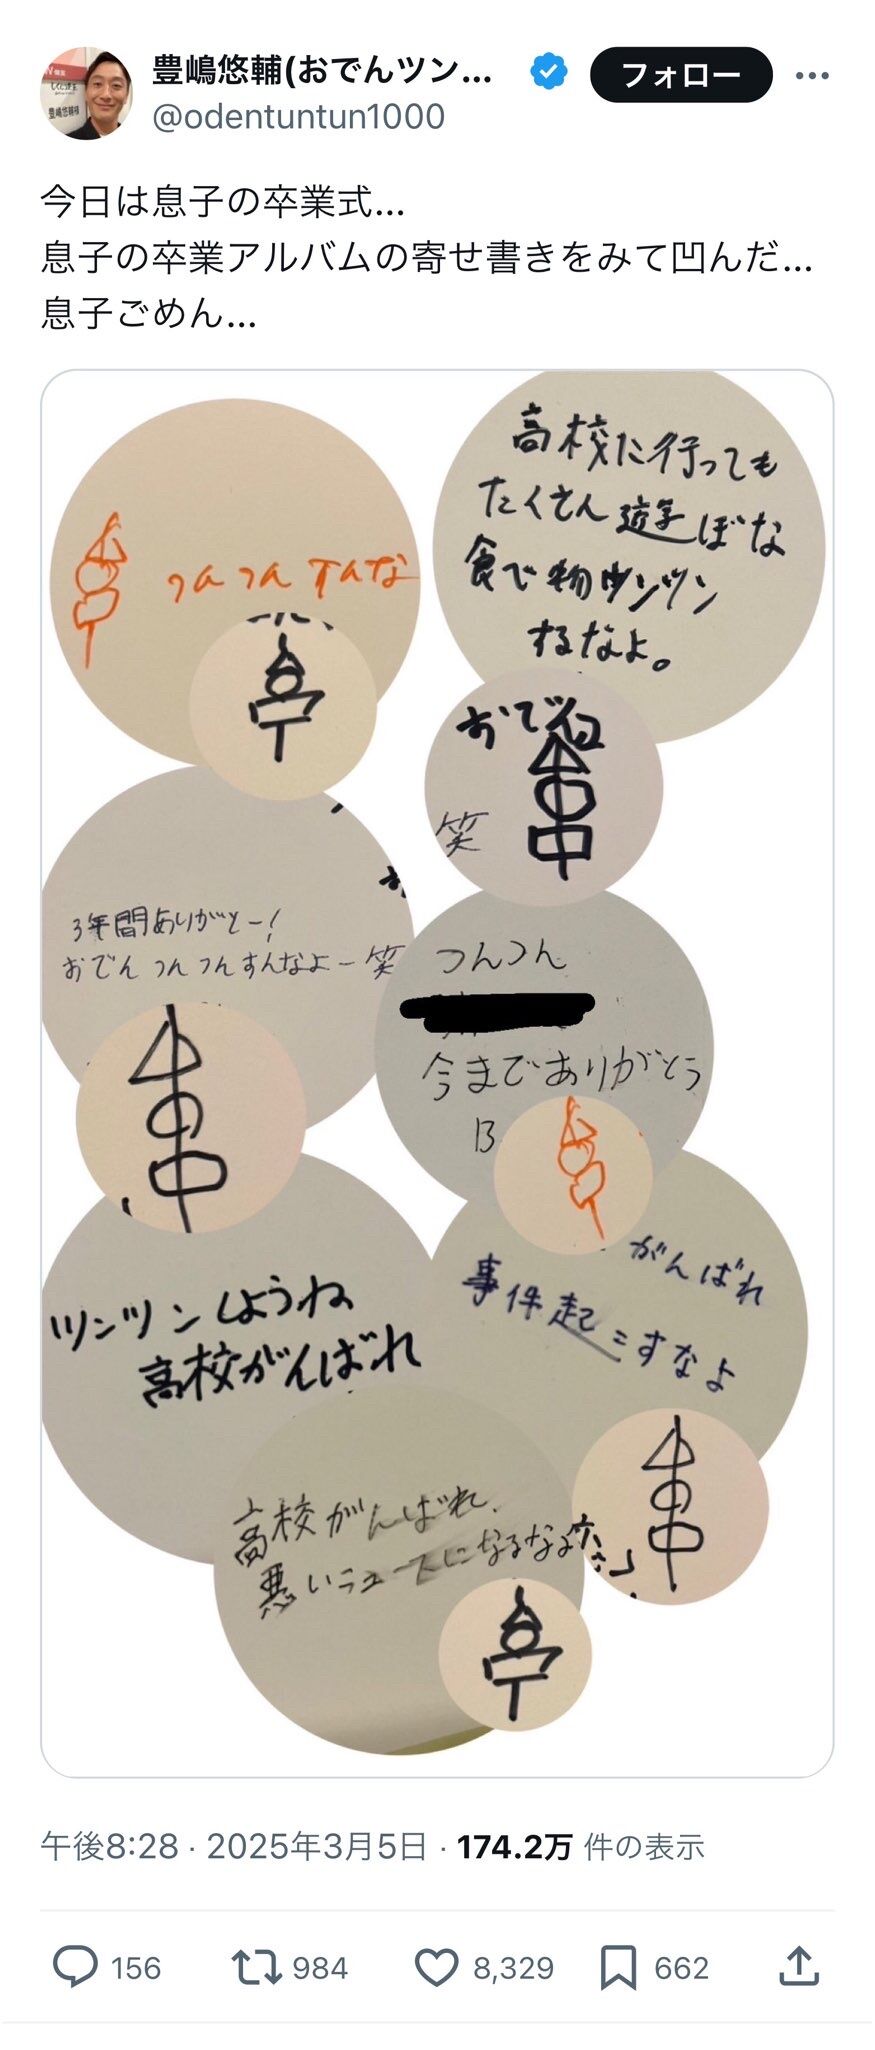 豊嶋悠輔(おでんツン...
フォロー
@odentuntun1000
今日は息子の卒業式...
息子の卒業アルバムの寄せ書きをみて凹んだ...
息子ごめん...
つんつんすんな
高校に行っても
たくさん遊ぼな
食べ物ツンツン
するなよ。
おでん
笑
3年間ありがとー!
おでんつんつんすんなよー笑
つんつん
今までありがとう
ツンツンしようね
高校がんばれ
がんばれ
事件起こすなよ
高校がんばれ、
悪いニュースになるなよ
午後8:28 · 2025年3月5日 · 174.2万 件の表示
156
984
8,329
662